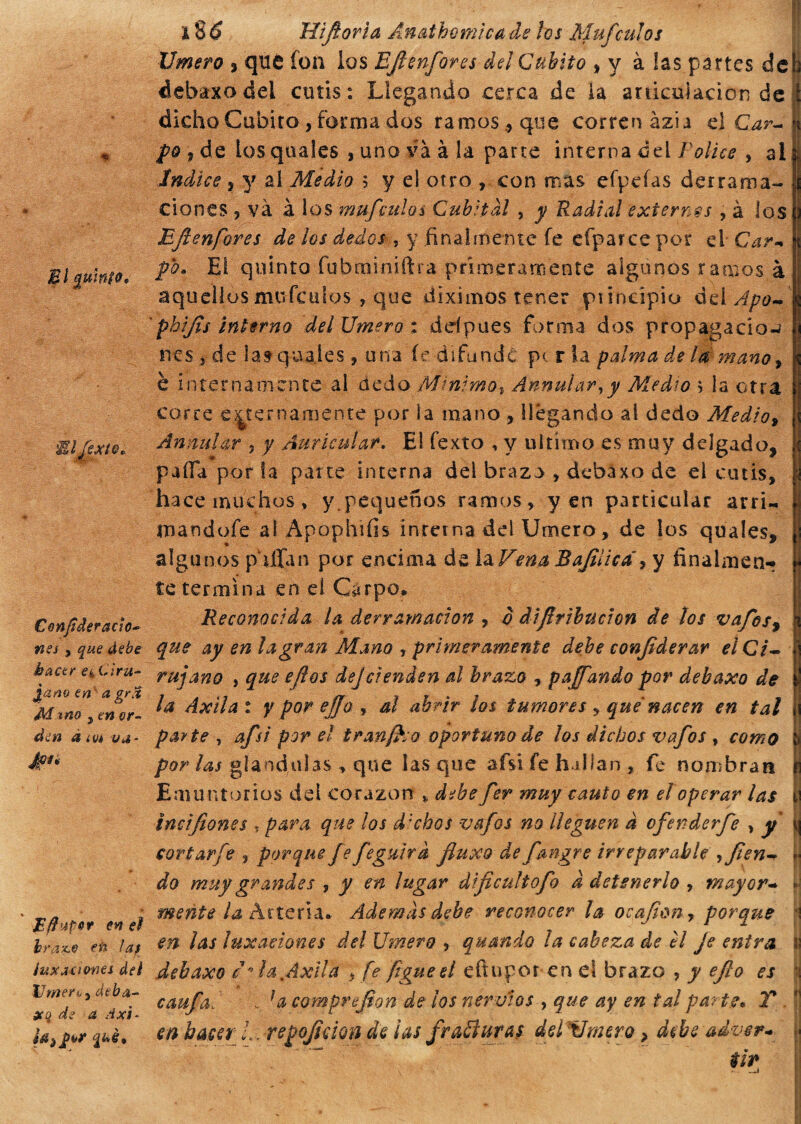 186 Hiſtoria Anathomica de los Muſculos
Umero, que ſon los Eſtenſores del Cubito, y à las partes de
debaxo del cutis: Llegando cerca de la articulacion de
dicho Cubito, forma dos ramos, que corren àzia el Car-
po, de los quales, uno và à la parte interna del Police, al
Indice, y al Medio; y el otro, con mas eſpeſas derrama-
ciones, và à los muſculos Cubitàl, y Radial externos, à los
Eſtenſores de los dedos, y finalmente ſe eſparce por el Car-
El quinto.
po. El quinto ſubminiſtra primeramente algunos ramos à
aquellos muſculos, que diximos tener principio del Apo-
phiſis interno del Umero: deſpues forma dos propagacio-
nes, de las quales, una ſe difunde por la palma de la mano,
è internamente al dedo Minimo, Annular, y Medio; la otra
corre externamente por la mano, llegando al dedo Medio,
El ſexto.
Annular, y Auricular. El ſexto, y ultimo es muy delgado,
paſſa por la parte interna del brazo, debaxo de el cutis,
hace muchos, y pequeños ramos, y en particular arri-
mandoſe al Apophiſis interna del Umero, de los quales,
algunos paſſan por encima de la Vena Baſilica, y finalmen-
te termina en el Carpo.
Conſideracio-
nes, que debe
hacer el Ciru-
jano en la gran
Mano, en or-
den à los va-
ſos.
Reconocida la derramacion, ò diſtribucion de los vaſos,
que ay en la gran Mano, primeramente debe conſiderar el Ci-
rujano, que eſtos deſcienden al brazo, paſſando por debaxo de
la Axila: y por eſſo, al abrir los tumores, que nacen en tal
parte, aſsi por el tranſito oportuno de los dichos vaſos, como
por las glandulas, que las que aſsi ſe hallan, ſe nombran
Emuntorios del corazon, debe ſer muy cauto en el operar las
inciſiones, para que los dichos vaſos no lleguen à ofenderſe, y
cortarſe, porque ſe ſeguirà fluxo de ſangre irreparable, ſien-
do muy grandes, y en lugar dificultoſo à detenerlo, mayor-
Eſtupor en el
brazo en las
luxaciones del
Umero, deba-
xo de la Axi-
la, por què.
mente la Arteria. Ademàs debe reconocer la ocaſion, porque
en las luxaciones del Umero, quando la cabeza de èl ſe entra
debaxo la Axila, ſe ſigue el eſtupor en el brazo, y eſto es
cauſa la compreſion de los nervios, que ay en tal parte. Y
en hacer la repoſicion de las fracturas del Umero, debe adver-
tir